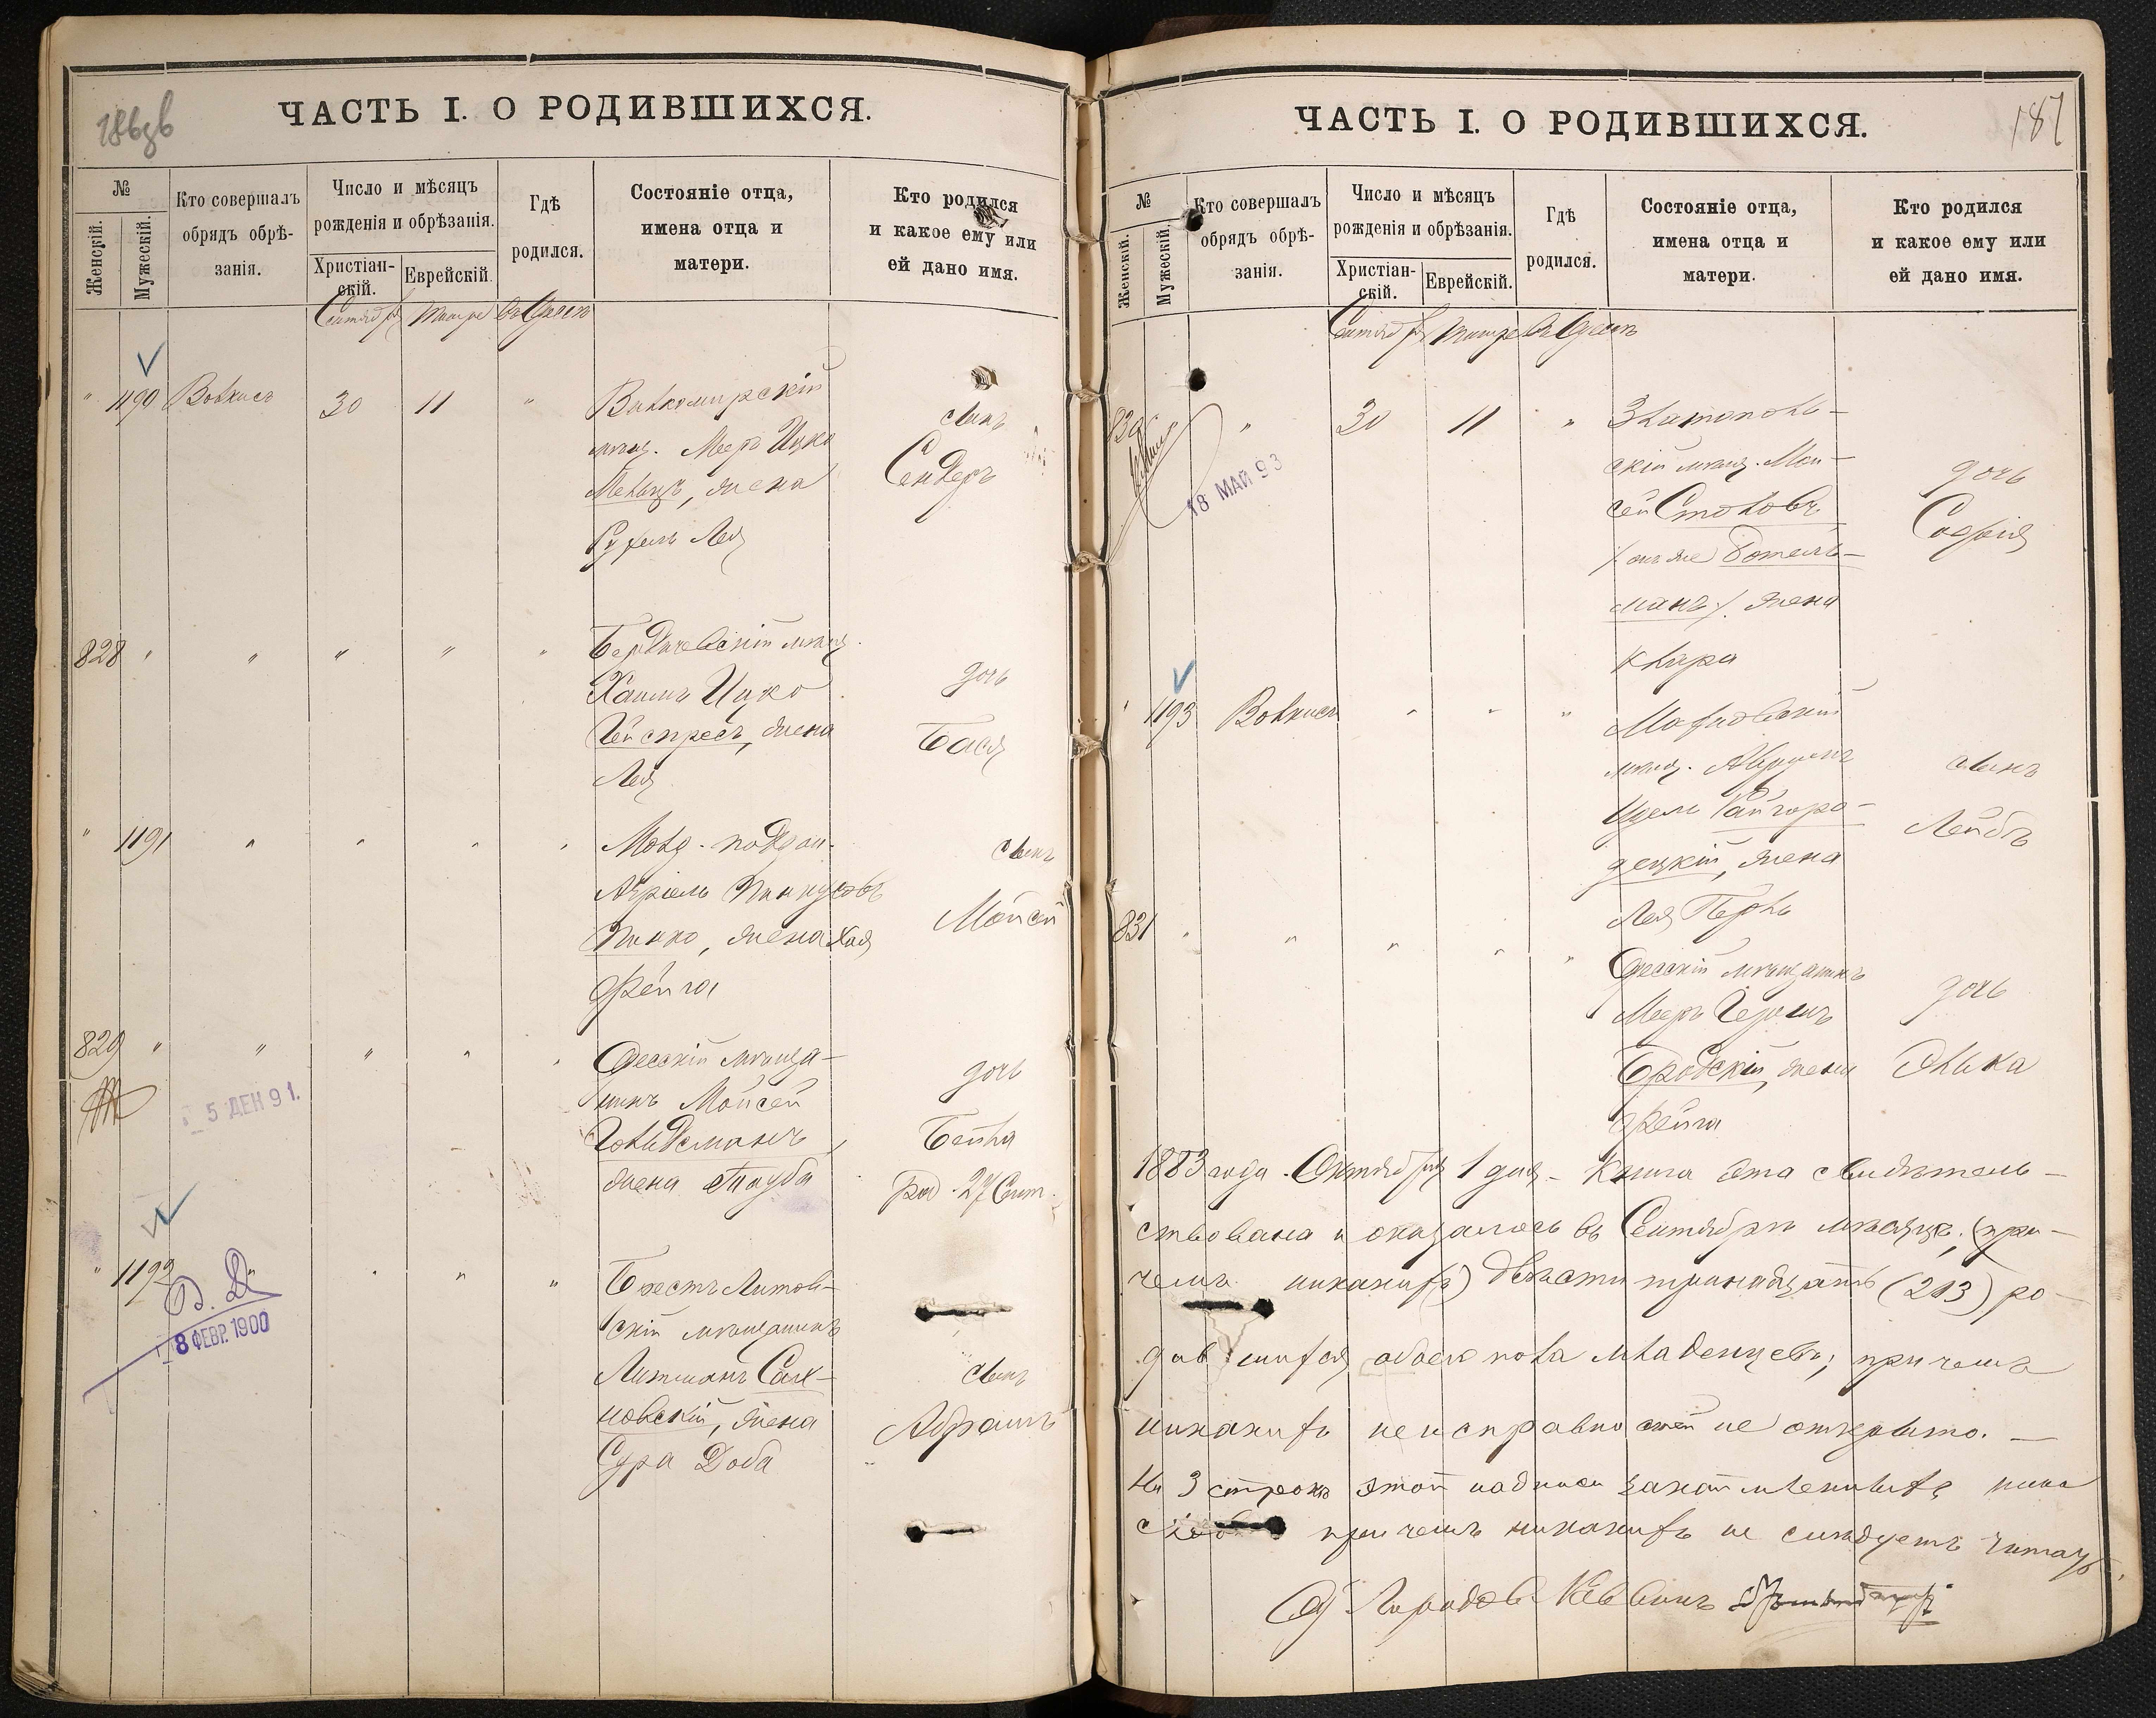 186об
ЧАСТЬ I. О РОДИВШИХСЯ.
№
Женскій.
Мужескій.
Кто совершалъ
обрядъ обрѣ-
занія.
Число и мѣсяцъ
рожденія и обрѣзанія.
Христіан-
скій.
Еврейскій.
Гдѣ
родился.
Состояніе отца,
имена отца и
матери.
Кто родился
и какое ему или
ей дано имя.
Сентября Тишре въ Одессѣ
" 1190 Вовкисъ 30 11 "
Вилкомирскій
мѣщ. Меръ Ицко
Меламъ, жена
Рухель Лея
сынъ
Сендеръ
828 " " " " "
Бердичевскій мѣщ.
Хаимъ Ицко
Гейспресъ, жена
Лея
дочь
Бася
" 1191 " " " "
Молд. поддан.
Азріель Пинкусовъ
Пинко, жена Хая
Фейга
сынъ
Мойсей
829 " " " " "
5 ДЕН 91.
Одесскій мѣща-
нинъ Мойсей
Гольдсманъ,
жена Тауба
дочь
Бейла
Род. 27 Сент.
" 1192 " " "
8 ФЕВР. 1900
Брестъ Литов-
скій мѣщанинъ
Литманъ Сах-
новскій, жена
Сура Доба
сынъ
Абрамъ
187
ЧАСТЬ I. О РОДИВШИХСЯ.
№
Женскій.
Мужескій.
Кто совершалъ
обрядъ обрѣ-
занія.
Число и мѣсяцъ
рожденія и обрѣзанія.
Христіан-
скій.
Еврейскій.
Гдѣ
родился.
Состояніе отца,
имена отца и
матери.
Кто родился
и какое ему или
ей дано имя.
Сентября Тишре въ Одессѣ
830 " 30 11 "
18 МАЙ 93
Златополь-
скій мѣщ. Мои-
сей Столовъ
/онъ же Готель-
манъ/. жена
Клара
дочь
Софія
" 1193 Вовкисъ " " "
мѣщ.
Райгоро-
децкій, жена
Лея Перль
сынъ
Лейбъ
831 " " " " "
Одесскій мѣщанинъ
Меръ Гершъ
Бродскій, жена
Фейга
дочь
Элька
1883 года. Октября 1 дня. Книга эта свидѣтель-
ствована и оказалось въ Сентябрѣ мѣсяцѣ, (при-
чемъ никакихъ) двѣсти тринадцать (213) ро-
дившихся обоего пола младенцевъ; причемъ
никакихъ неисправностей не открыто. —
На 3 строкѣ этой надписи
причемъ никакихъ не слѣдуетъ читать